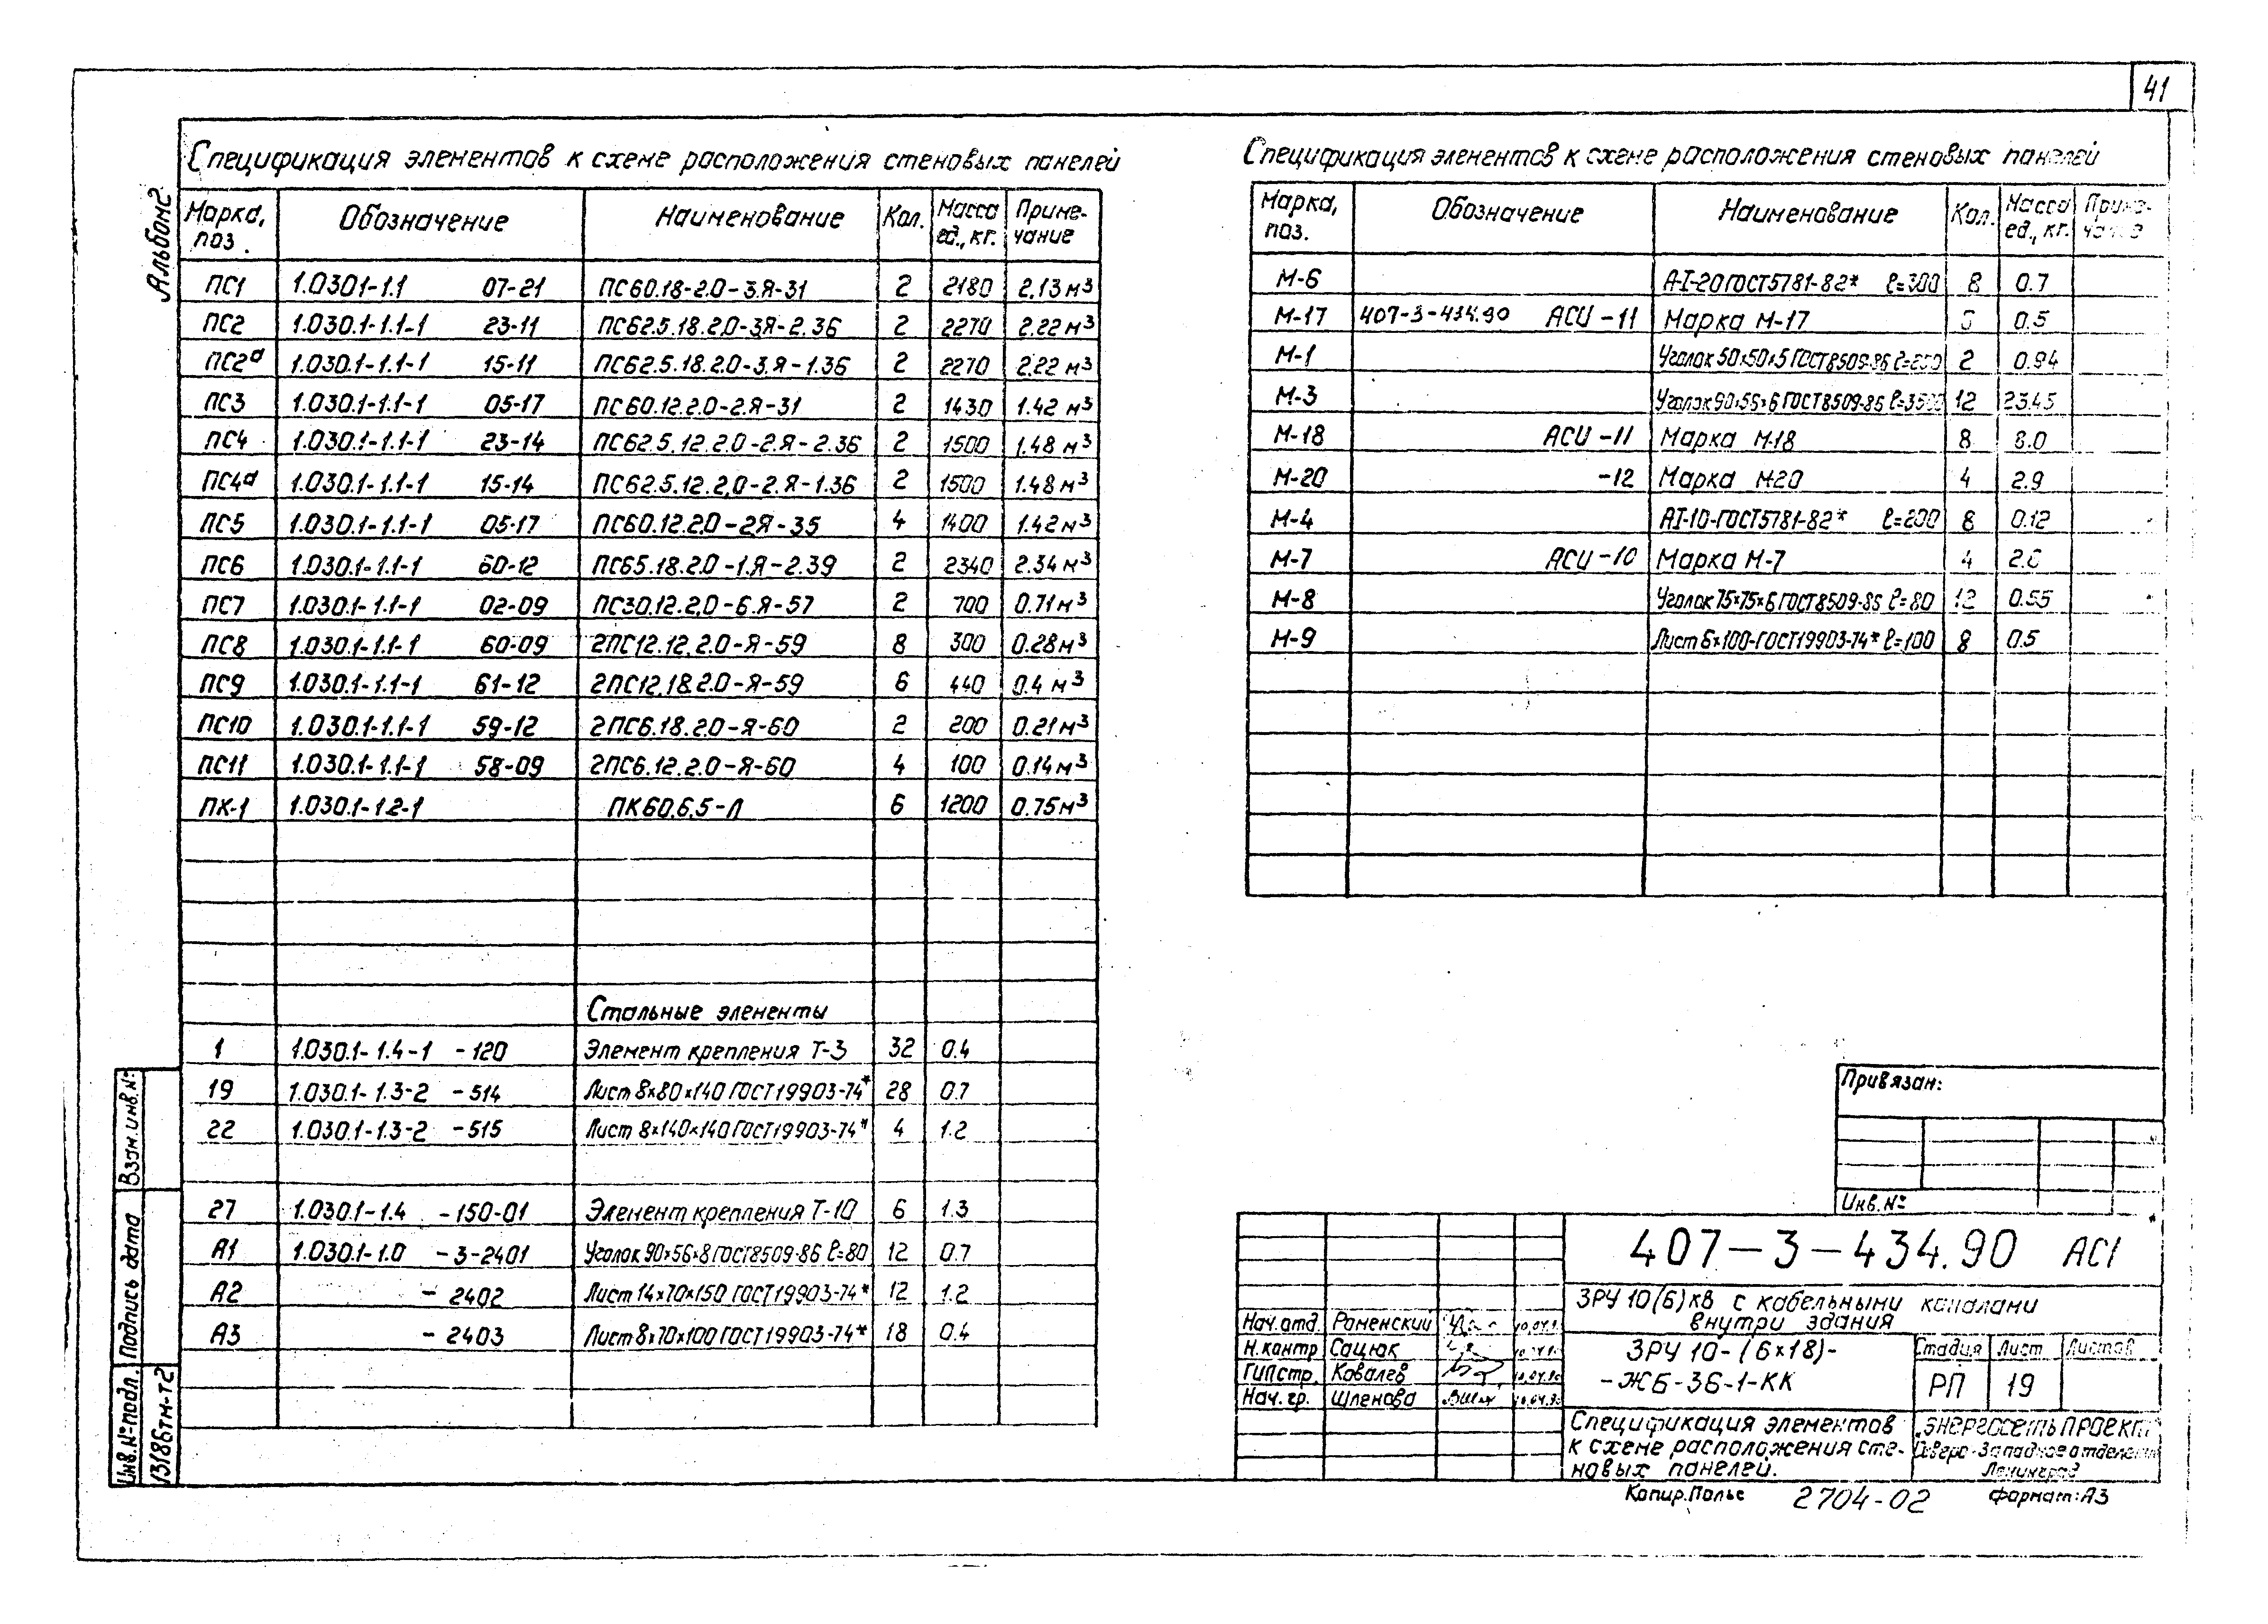 41
Альбом 2
Спецификация элементов к схеме расположения стеновых панелей
Марка, поз. Обозначение Наименование Кол. Масса ед., кг. Примечание
ПС1 1.0301-1.1 07-21 ПС60.18-2.0-3.Я-31 2 2180 2.13 м³
ПС2 1.030.1-1.1-1 23-11 ПС62.5.18.2.0-3Я-2.36 2 2270 2.22 м³
ПС2а 1.030.1-1.1-1 15-11 ПС62.5.18.2.0-3.Я-1.36 2 2270 2.22 м³
ПС3 1.030.1-1.1-1 05-17 ПС60.12.2.0-2.Я-31 2 1430 1.42 м³
ПС4 1.030.1-1.1-1 23-14 ПС62.5.12.2.0-2.Я-2.36 2 1500 1.48 м³
ПС4а 1.030.1-1.1-1 15-14 ПС62.5.12.2.0-2.Я-1.36 2 1500 1.48 м³
ПС5 1.030.1-1.1-1 05-17 ПС60.12.2.0-2Я-35 4 1400 1.42 м³
ПС6 1.030.1-1.1-1 60-12 ПС65.18.2.0-1.Я-2.39 2 2340 2.34 м³
ПС7 1.030.1-1.1-1 02-09 ПС30.12.2.0-6.Я-57 2 700 0.71 м³
ПС8 1.030.1-1.1-1 60-09 2ПС12.12.2.0-Я-59 8 300 0.28 м³
ПС9 1.030.1-1.1-1 61-12 2ПС12.18.2.0-Я-59 6 440 0.4 м³
ПС10 1.030.1-1.1-1 59-12 2ПС6.18.2.0-Я-60 2 200 0.21 м³
ПС11 1.030.1-1.1-1 58-09 2ПС6.12.2.0-Я-60 4 100 0.14 м³
ПК-1 1.030.1-1.2-1 ПК60.6.5-Л 6 1200 0.75 м³
Стальные элементы
1 1.030.1-1.4-1 -120 Элемент крепления Т-3 32 0.4
19 1.030.1-1.3-2 -514 Лист 8×80×140 ГОСТ19903-74* 28 0.7
22 1.030.1-1.3-2 -515 Лист 8×140×140 ГОСТ19903-74* 4 1.2
27 1.030.1-1.4 -150-01 Элемент крепления Т-10 6 1.3
А1 1.030.1-1.0 -3-2401 Уголок 90×56×8 ГОСТ8509-86 ℓ=80 12 0.7
А2 -2402 Лист 14×70×150 ГОСТ19903-74* 12 1.2
А3 -2403 Лист 8×70×100 ГОСТ19903-74* 18 0.4
Спецификация элементов к схеме расположения стеновых панелей
Марка, поз. Обозначение Наименование Кол. Масса ед., кг. Примечание
М-6 А-I-20 ГОСТ5781-82* ℓ=300 8 0.7
М-17 407-3-434.90 АСИ-11 Марка М-17 0.5
М-1 Уголок 50×50×5 ГОСТ8509-86 2 0.94
М-3 ГОСТ8509-86 12 23.45
М-18 АСИ-11 Марка М-18 8 8.0
М-20 -12 Марка М-20 4 2.9
М-4 АI-10-ГОСТ5781-82* ℓ=200 8 0.12
М-7 АСИ-10 Марка М-7 4
М-8 Уголок 75×75×6 ГОСТ8509-86 ℓ=80 12 0.55
М-9 Лист 6×100-ГОСТ19903-74* ℓ=100 8 0.5
Привязан:
Инв.№
407-3-434.90 АС1
ЗРУ 10(6)кВ с кабельными каналами
внутри здания
Нач.отд. Роменский
Н.контр Сацюк
ГИПстр. Ковалев
Нач.гр. Шленова
ЗРУ 10-(6×18)-
-ЖБ-36-1-КК
Стадия Лист Листов
РП 19
Спецификация элементов
к схеме расположения сте-
новых панелей.
Энергосетьпроект
Северо-Западное отделение
Ленинград
Копир. Полье 2704-02 Формат: А3
Взам.инв.№
Подпись дата
Инв.№подл.
13186тм-т2